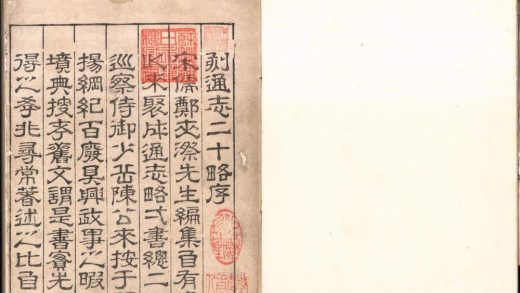 刻通志二十略序
宋儒鄭夾漈先生編集自有
以來聚成通志略弌書總二
巡察侍御少岳陳公來按于
揚綱紀百廢具興政事以暇
墳典搜孝舊文謂是書實先
得以季非尋常著述以比自